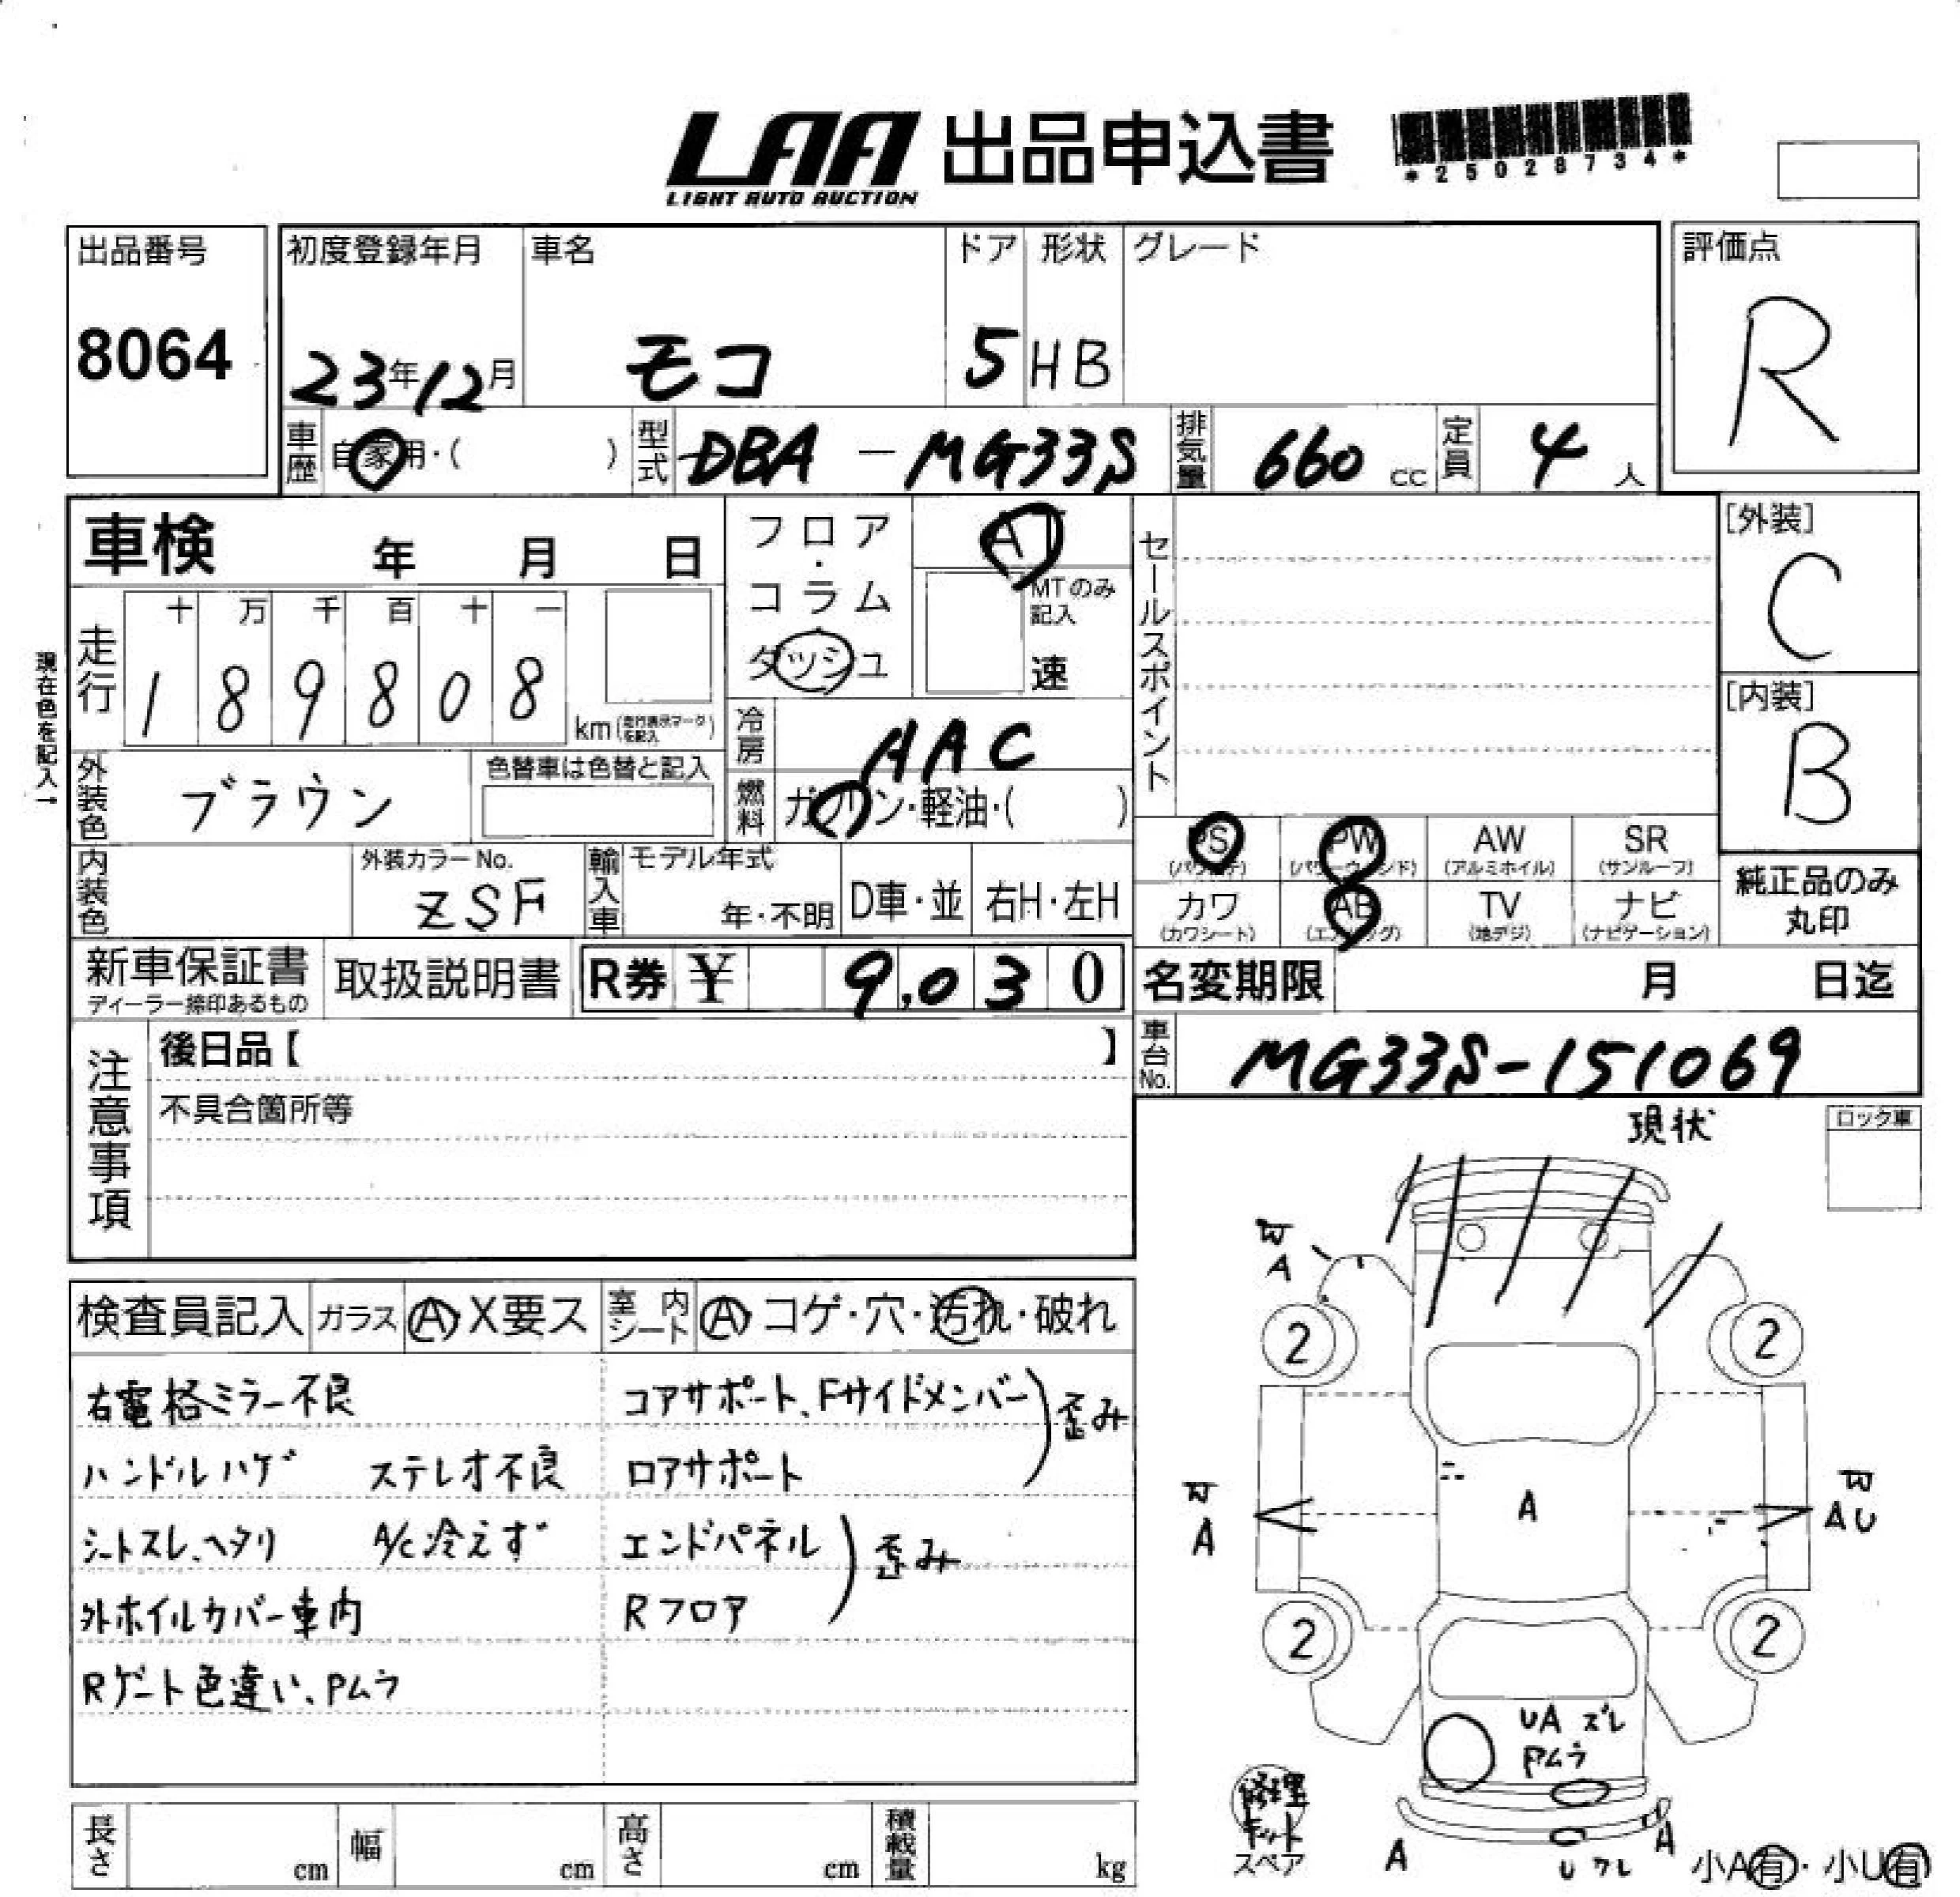 LAA 出品申込書
LIGHT AUTO AUCTION
*25028734*
出品番号
8064
初度登録年月
23年12月
車名
モコ
ドア
5
形状
HB
グレード
評価点
R
車歴
自家用・( )
型式
DBA-MG33S
排気量
660 cc
定員
4 人
車検 年 月 日
フロア・コラム
ダッシュ
AT
MTのみ記入
速
セールスポイント
[外装]
C
[内装]
B
現在色を記入→
走行
十 万 千 百 十 一
1 8 9 8 0 8
km(走行表示マークを記入)
冷房
AAC
燃料
ガソリン・軽油・( )
外装色
ブラウン
色替車は色替と記入
内装色
外装カラーNo.
ZSF
輸入車
モデル年式
年・不明
D車・並
右H・左H
PS
PW
(パワーウィンド)
AW
(アルミホイル)
SR
(サンルーフ)
カワ
(カワシート)
AB
(エアバッグ)
TV
(地デジ)
ナビ
(ナビゲーション)
純正品のみ
丸印
新車保証書
ディーラー捺印あるもの
取扱説明書
R券 ¥ 9,030
名変期限 月 日迄
車台No.
MG33S-151069
注意事項
後日品【 】
不具合箇所等
現状
ロック車
検査員記入
ガラス
A X要ス
室内シート
A コゲ・穴・汚れ・破れ
右電格ミラー不良
ハンドルハゲ ステレオ不良
シートスレ、ヘタリ A/C冷えず
外ホイルカバー車内
Rゲート色違い、Pムラ
コアサポート、Fサイドメンバー
ロアサポート
歪み
エンドパネル
Rフロア
歪み
A
2
2
A
A
AU
2
2
UA ズレ
Pムラ
修理
キット
スペア
A
U ワレ
A
小A有・小U有
長さ cm
幅 cm
高さ cm
積載量 kg